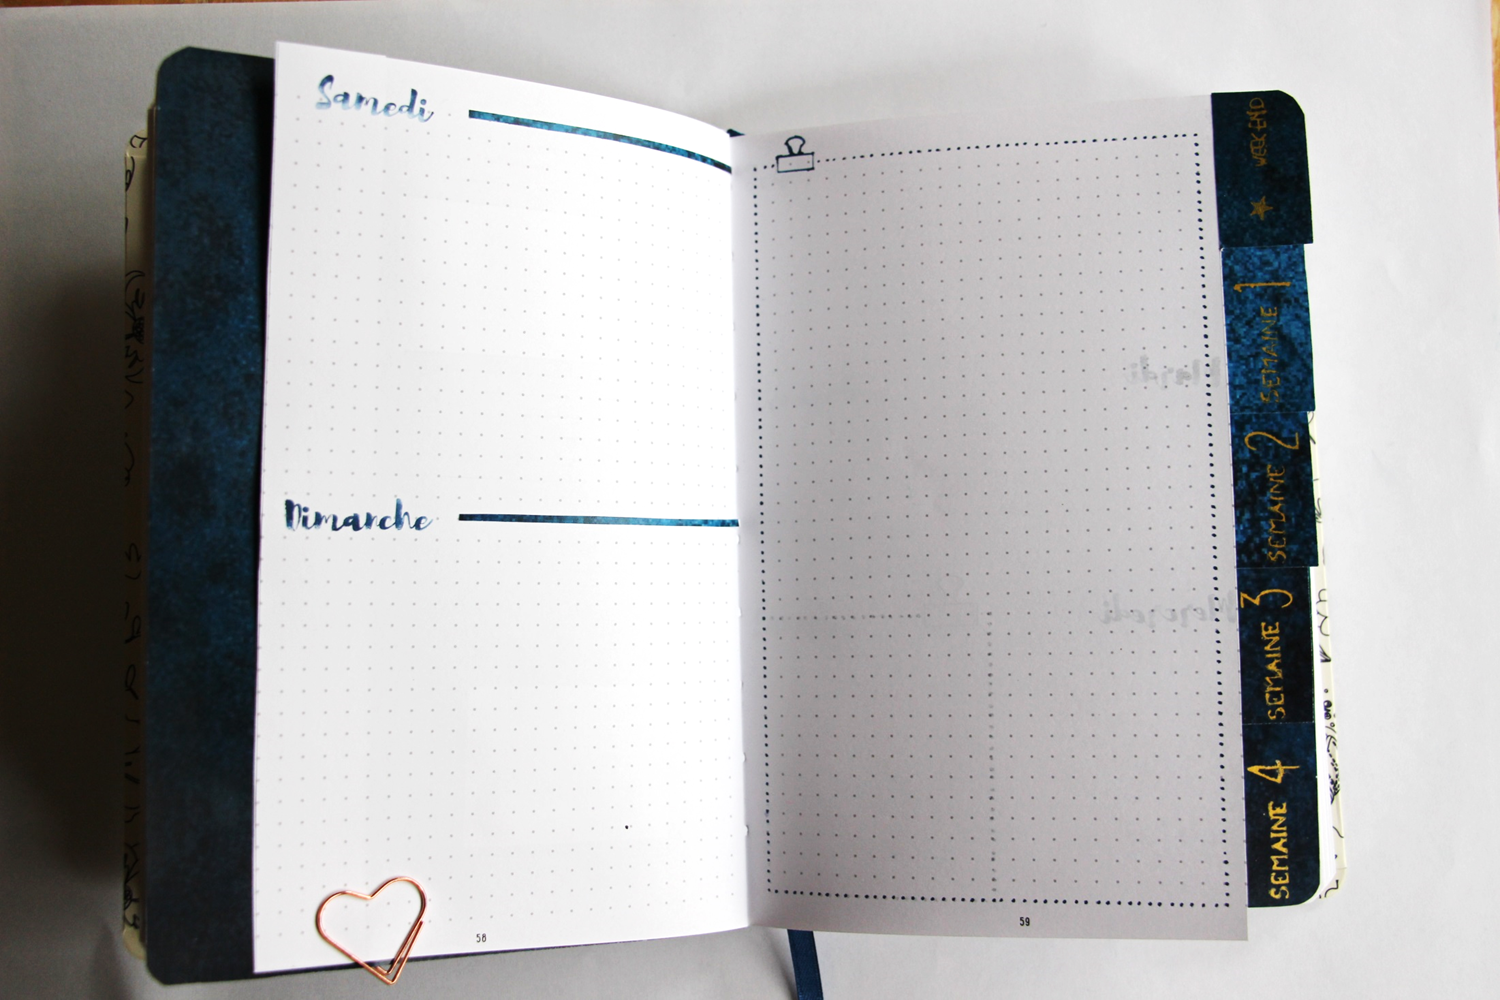 Samedi
Dimanche
58
59
WEEK END
SEMAINE 1
SEMAINE 2
SEMAINE 3
SEMAINE 4
Mardi
Mercredi